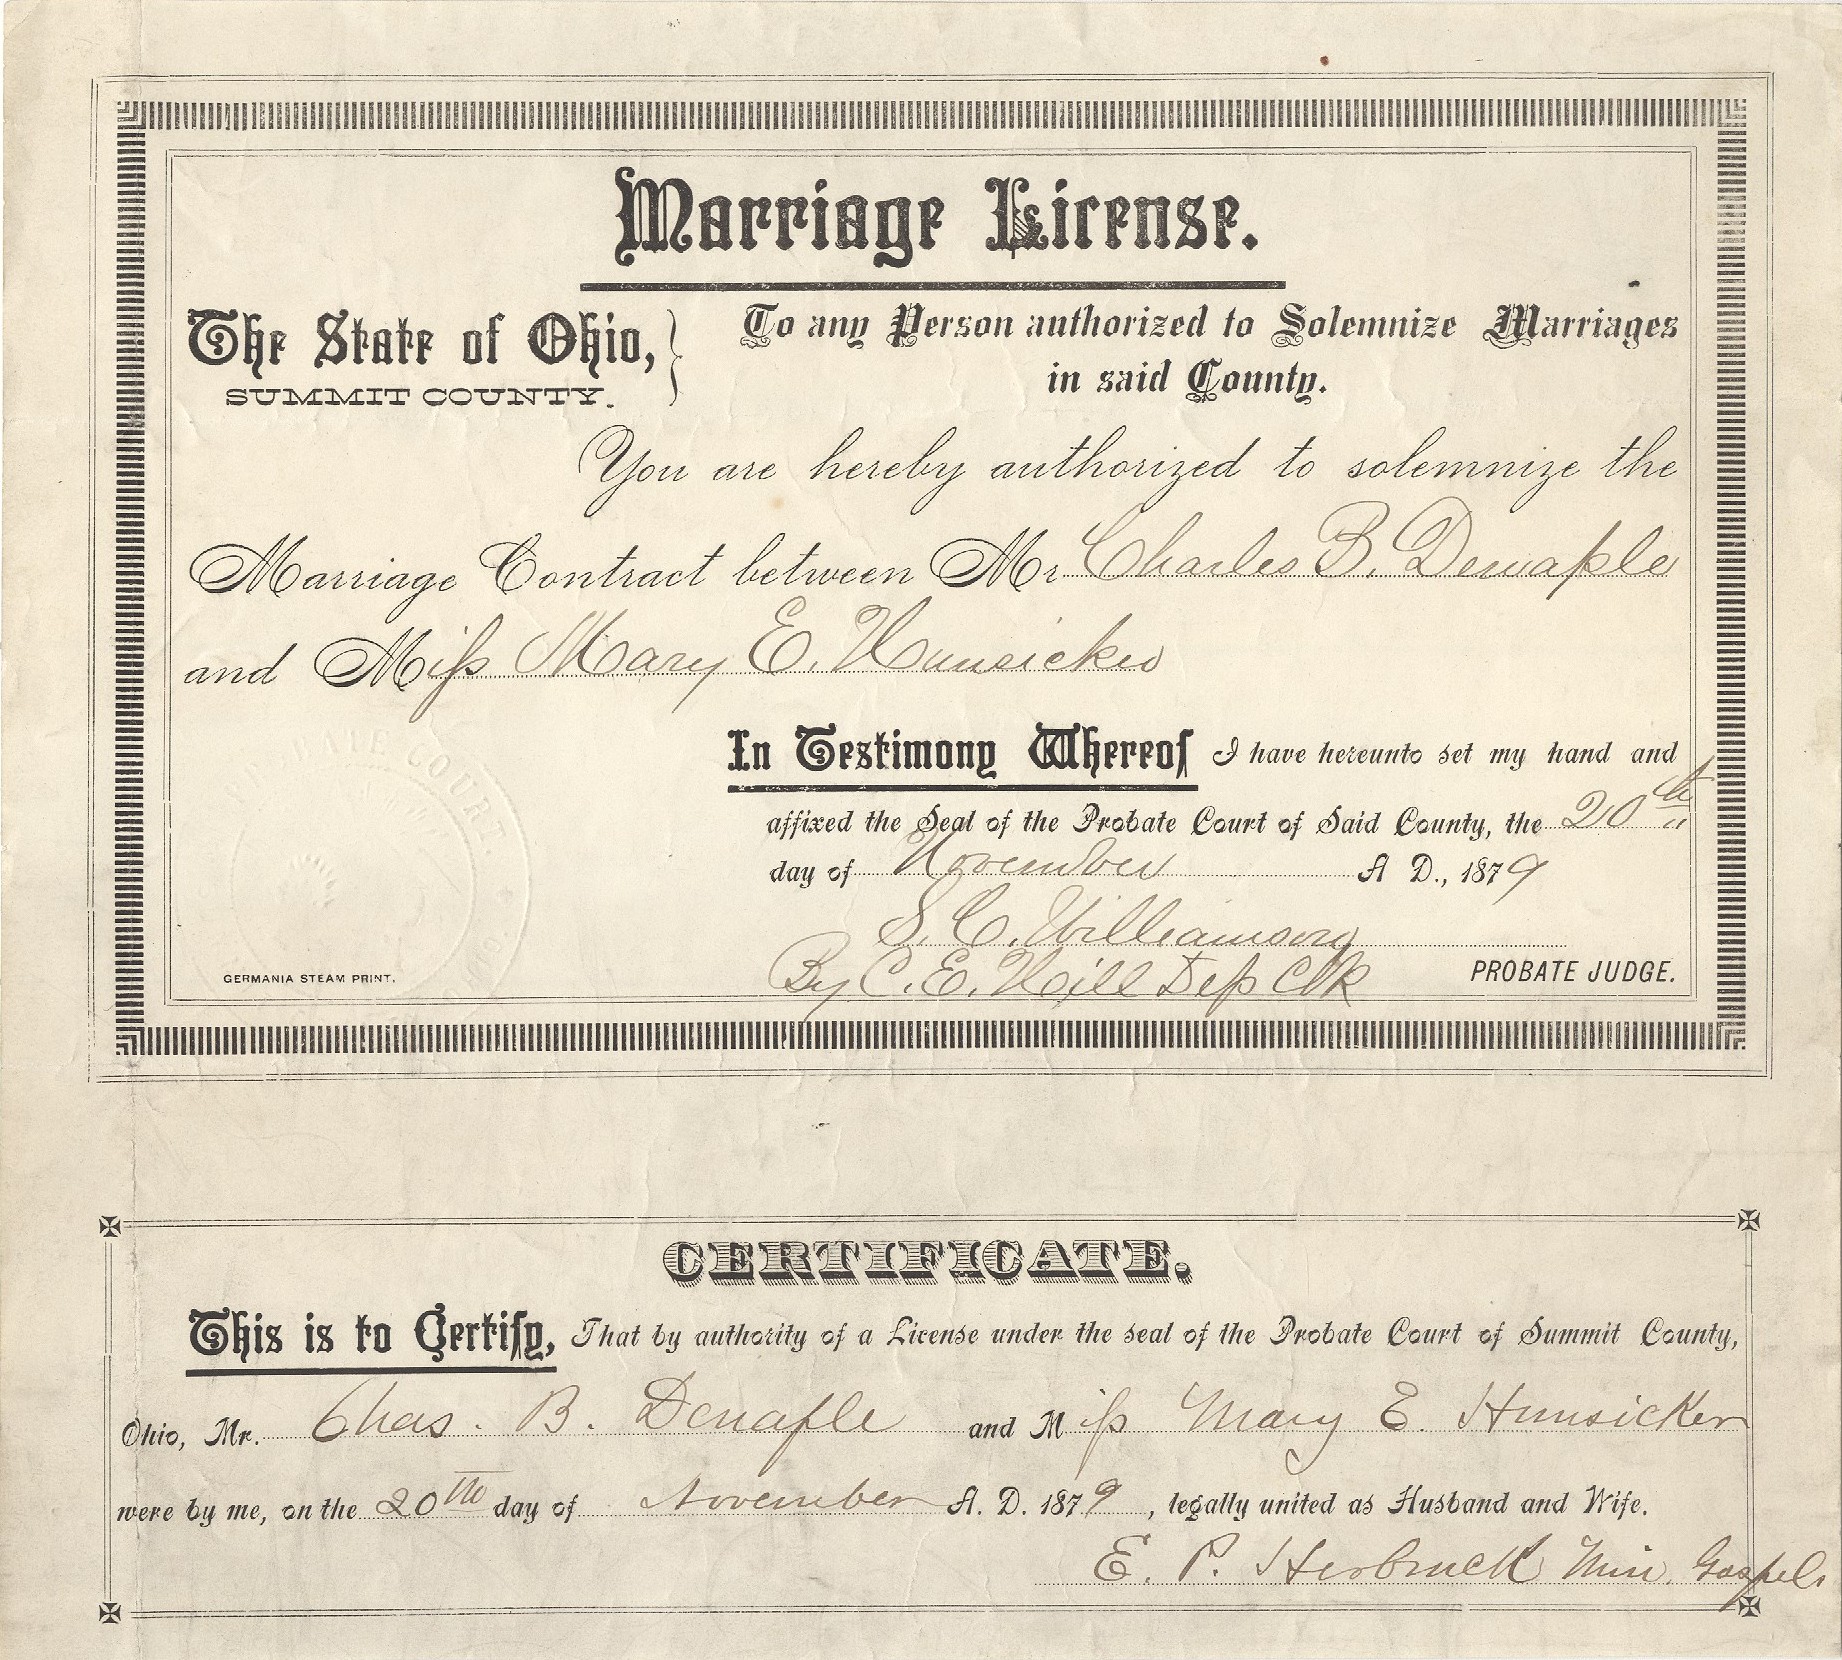 Marriage License.
The State of Ohio,
SUMMIT COUNTY.
To any Person authorized to Solemnize Marriages
in said County.
You are hereby authorized to solemnize the
Marriage Contract between Mr Charles B. Denaple
and Miss Mary E. Hunsicker
In Testimony Whereof I have hereunto set my hand and
affixed the Seal of the Probate Court of Said County, the 20th
day of November A D., 1879
S. C. Williamson
By C. E. Neill Dep Clk PROBATE JUDGE.
PROBATE COURT
GERMANIA STEAM PRINT.
CERTIFICATE.
This is to Certify, That by authority of a License under the seal of the Probate Court of Summit County,
Ohio, Mr. Chas. B. Denaple and Miss Mary E. Hunsicker
were by me, on the 20th day of November A. D. 1879, legally united as Husband and Wife.
E. P. Herbruck Min. Gospel